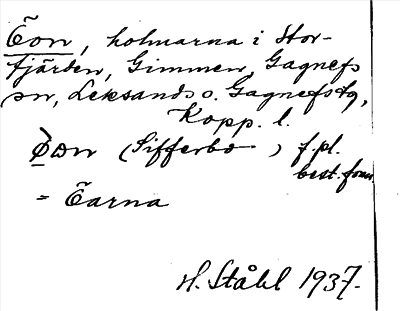 Öon, holmarna i Stor-
fjärden, Gimmen, Gagnefs
sn, Leksands o. Gagnefs tg,
Kopp. l.
(Sifferbo) f. pl.
best. form
= Öarna
H. Ståhl 1937.